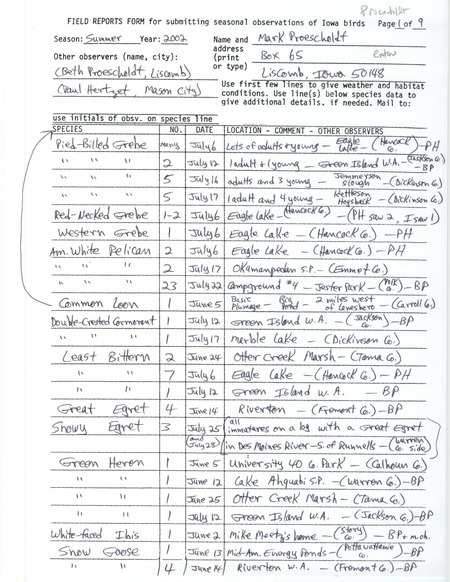 Proescholdt
FIELD REPORTS FORM for submitting seasonal observations of Iowa birds Page 1 of 9
Season: Summer Year: 2002 Name and Mark Proescholdt
Other observers (name, city): address Box 65
(print
(Beth Proescholdt, Liscomb) or type) Liscomb, Iowa 50148
(Paul Hertzel, Mason City) Use first few lines to give weather and habitat
conditions. Use line(s) below species data to
give additional details. if needed. Mail to:
use initials of obsv. on species line
SPECIES NO. DATE LOCATION - COMMENT - OTHER OBSERVERS
Pied-Billed Grebe many July 6 Lots of adults + young - Eagle Lake - (Hancock Co.) - PH
" " " 2 July 12 1 adult + 1 young - Green Island W.A. - (Jackson Co.) - BP
" " " 5 July 16 adults and 3 young - Jemmerson Slough - (Dickinson Co.)
" " " 5 July 17 1 adult and 4 young - Kettleson Hogsback - (Dickinson Co.)
Red-Necked Grebe 1-2 July 6 Eagle Lake - (Hancock Co.) - (PH saw 2, I saw 1)
Western Grebe 1 July 6 Eagle Lake - (Hancock Co.) - PH
Am. White Pelican 2 July 6 Eagle Lake - (Hancock Co.) - PH
" " " 2 July 17 Okamanpadan S.P. - (Emmet Co.)
" " " 23 July 22 Campground #4 - Jester Park - (Polk Co.) - BP
Common Loon 1 June 5 Basic Plumage - Big Pond - 2 miles west of Lanesboro - (Carroll Co.)
Double-Crested Cormorant 1 July 12 Green Island W.A. - (Jackson Co.) - BP
" " " 1 July 17 Marble Lake - (Dickinson Co.)
Least Bittern 2 June 24 Otter Creek Marsh - (Tama Co.)
" " 7 July 6 Eagle Lake - (Hancock Co.) - PH
" " 1 July 12 Green Island W.A. - BP
Great Egret 4 June 14 Riverton - (Fremont Co.) - BP
Snowy Egret 3 July 25 all immatures on a log with a Great Egret
(and July 28) in Des Moines River - S. of Runnells - (Warren Co. side)
Green Heron 1 June 5 University 40 Co. Park - (Calhoun Co.)
" " 1 June 12 Lake Ahquabi S.P. - (Warren Co.) - BP
" " 1 June 25 Otter Creek Marsh - (Tama Co.)
" " 1 July 12 Green Island W.A. - (Jackson Co.) - BP
White-faced Ibis 1 June 2 Mike Meetz's home - (Story Co.) - BP + m.ob.
Snow Goose 1 June 13 Mid-Am. Energy Ponds - (Pottawattamie Co.) - BP
" " 4 June 14 Riverton W.A. - (Fremont Co.) - BP